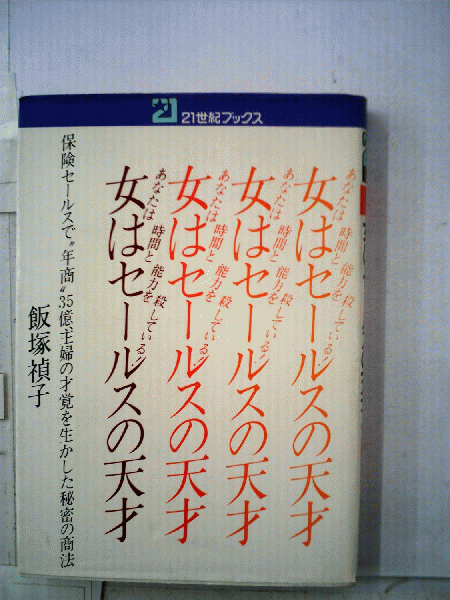 21世紀ブックス
あなたは時間と能力を殺している!
女はセールスの天才
あなたは時間と能力を殺している!
女はセールスの天才
あなたは時間と能力を殺している!
女はセールスの天才
あなたは時間と能力を殺している!
女はセールスの天才
保険セールスで〝年商〟35億、主婦の才覚を生かした秘密の商法
飯塚禎子